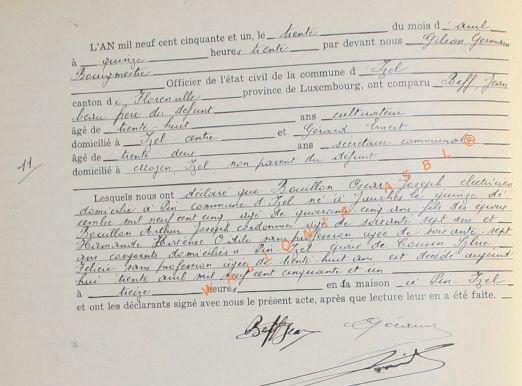 L'AN mil neuf cent cinquante et un, le trente du mois d'avril
à quinze heures trente par devant nous Gilson, Germain
Bourgmestre Officier de l'état civil de la commune d'Izel
canton de Florenville province de Luxembourg, ont comparu Beff, Jean
beau frère du défunt
âgé de trente-huit ans cultivateur
domicilié à Izel-centre et Gérard, Ernest
âgé de trente deux ans secrétaire communal
domicilié à Izel, non parent du défunt
11
Lesquels nous ont déclaré que Bouillon Oscar Joseph électricien
domicilié à Pin commune d'Izel né à le quinze
mil neuf cent cinq âgé de quarante cinq ans fils des époux
Bouillon Arthur Joseph cordonnier âgé de soixante sept ans et
Hortense Odile sans profession âgée de soixante-sept
ans conjoints domiciliés à Pin Izel époux de
Félicie sans profession âgée de trente huit ans est décédé aujourd'
hui trente avril mil neuf cent cinquante et un
à treize heures en la maison à Pin-Izel
et ont les déclarants signé avec nous le présent acte, après que lecture leur en a été faite.
WALLONIA ASBL
Beff Jean EGérard